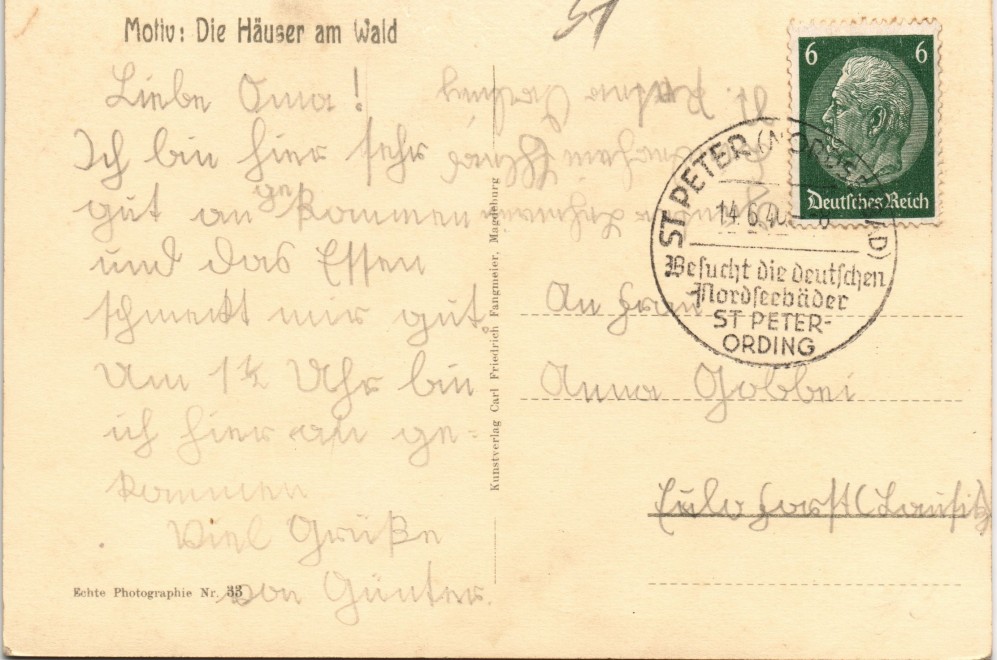 Motiv: Die Häuser am Wald
51
Liebe Oma!
Ich bin hier sehr
gut an gekommen
und das Essen
schmeckt mir gut.
Um 1½ Uhr bin
ich hier an ge=
kommen
Viel Grüße
von Günter.
Echte Photographie Nr. 33
Kunstverlag Carl Friedrich Fangmeier, Magdeburg
St. Peter Ording
6 6
Deutsches Reich
ST PETER (NORDSEEBAD)
14.6.4
-8
Besucht die deutschen
Nordseebäder
ST PETER-
ORDING
An Frau
Anna Gobbei
Eulo Forst (Lausitz)